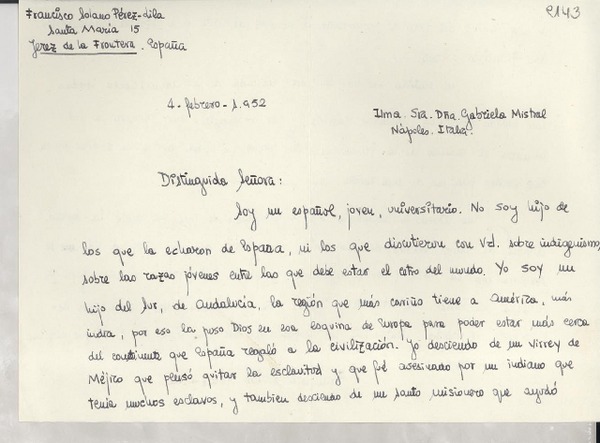 Francisco Solano Pérez-Lila
Santa María 15
Jerez de la Frontera. España
2143
4-febrero-1.952
Ilma. Sra. Dña. Gabriela Mistral
Nápoles. Italia.
Distinguida Señora:
Soy un español, joven, universitario. No soy hijo de
los que la echaron de España, ni los que discutieron con Vd. sobre indigenismo,
sobre las razas jóvenes entre las que debe estar el cetro del mundo. Yo soy un
hijo del Sur, de Andalucía, la región que más cariño tiene a América, más
indra, por eso la puso Dios en esa esquina de Europa para poder estar más cerca
del continente que España regaló a la civilización. Yo desciendo de un virrey de
Méjico que pensó quitar la esclavitud y que fué asesinado por un indiano que
tenía muchos esclavos, y tambien desciendo de un santo misionero que ayudó